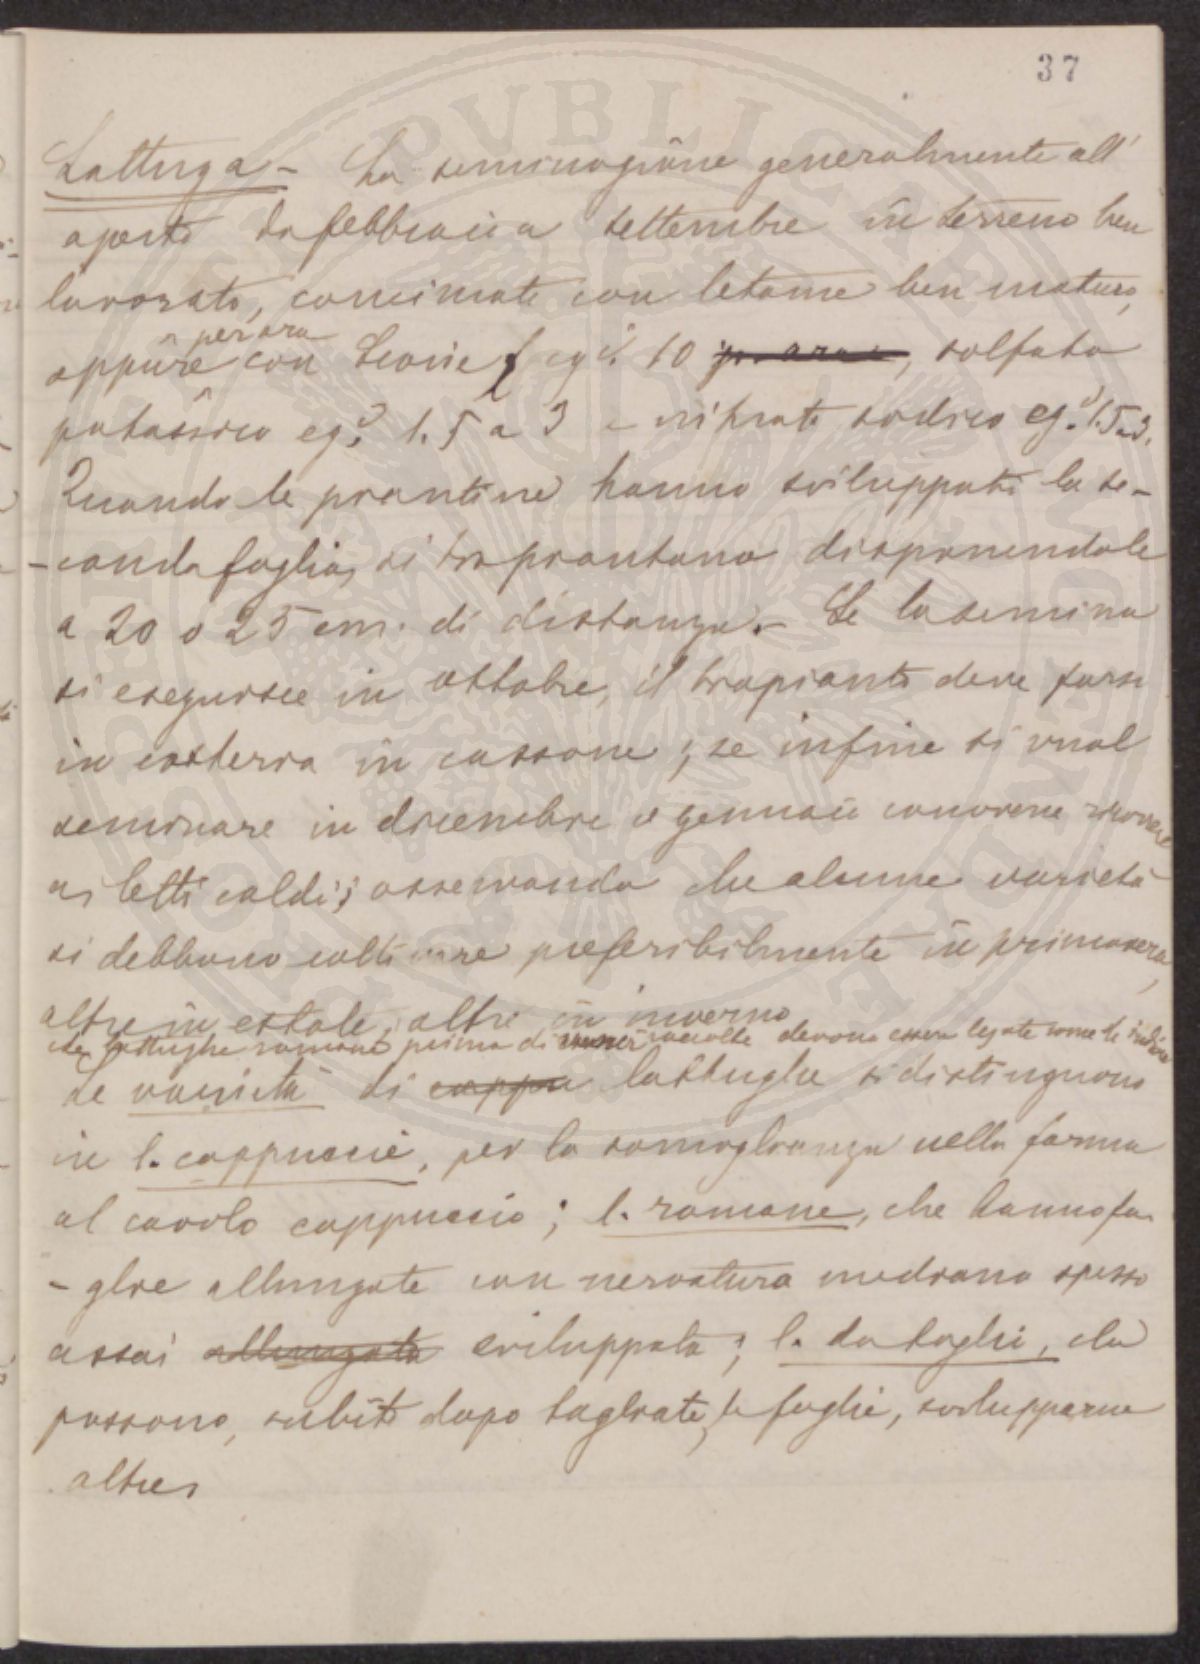 37
Lattuga - La seminagione generalmente all'
aperto da febbraio a settembre in terreno ben
lavorato, concimato con letame ben maturo,
per ara
oppure con Scorie cg.i 10 per ara, solfato
potassico cg.i 1.5 a 3 e nitrato sodico cg.i 1.5 a 3.
Quando le piantine hanno sviluppato la se-
-conda foglia, si trapiantano disponendole
a 20 o 25 cm. di distanza. - Se la semina
si eseguisce in ottobre, il trapianto deve farsi
in costerra in cassone; se infine si vuol
seminare in dicembre e gennaio conviene ricorrere
ai letti caldi; osservando che alcune varietà
si debbono coltivare preferibilmente in primavera,
altre in estate, altre in inverno
Le lattughe romane prima di raccolte devono essere legate come le indivie
Le varietà di cappu lattughe si distinguono
in l. cappuccie, per la somoglianza nella forma
al cavolo cappuccio; l. romane, che hanno fo
- glie allungate con nervatura mediana spesso
assai allungata sviluppata; l. da taglio, che
possono, subito dopo tagliate le foglie, svilupparne
altre